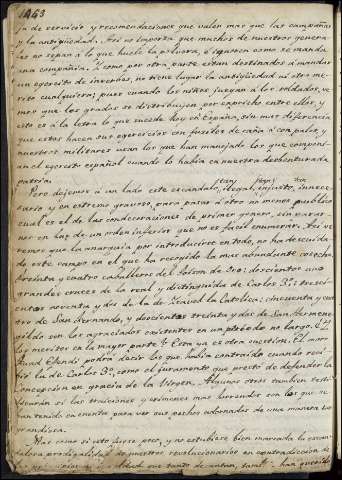 1463
ja de servicio y recomendaciones que valen mas que las campañas
y la antigüedad. Asi no importa que muchos de nuestros genera-
les no sepan a lo que huele la polvora, ó ignoren como se manda
una compañia. Y como por otra parte estan destinados á mandar
un egercito de invernos, no tiene lugar la antigüedad ni otro mé-
rito cualquiera; pues cuando los niños juegan á los soldados, ve-
mos que los grados se distribuyen por capricho entre ellos, y
esto es á la letra lo que sucede hoy en España, sin mas diferencia
que estos hacen sus egercicios con fusiles de caña ó con palos, y
nuestros militares usan los que han manejado los que componi-
an el egercito español cuando lo habia en nuestra desventurada
patria.
Pero dejemos á un lado este escandalo, ilegal, injusto, innece-
sario y en extremo gravoso, para pasar á otro no menos publico
cual es el de las condecoraciones de primer genero, sin parar-
nos en las de un orden inferior que no es facil enumerar. Asi ve-
remos que la anarquia por introducirse en todo, no ha descuida-
do este campo en el que ha recogido la mas abundante cosecha.
Treinta y cuatro caballeros del Toison de Oro: doscientas una
grandes cruces de la real y distinguida de Carlos 3º: trescien-
tas noventa y dos de la de Isavel la Catolica: cincuenta y cua-
tro de San Fernando, y doscientas treinta y dos de San Herme-
negildo son los agraciados existentes en un periodo no largo. ¿Y
los meritos en la mayor parte? Esta ya es otra cuestion. El moro
Fuad Efendi podrá decir los que habia contraido cuando reci-
bió la de Carlos 3º, como el juramento que prestó de defender la
Concepcion en gracia de la Virgen. Algunos otros tambien testi-
ficarán si las traiciones y crimenes mas horrendos son los que se
han tenido en cuenta para ver sus pechos adornados de una manera tan
grandiosa.
Mas como si esto fuese poco, y no estubiese bien marcada la escan-
dalosa prodigalidad de nuestros revolucionarios en contradiccion de
que tanto decantan, tambien han querido